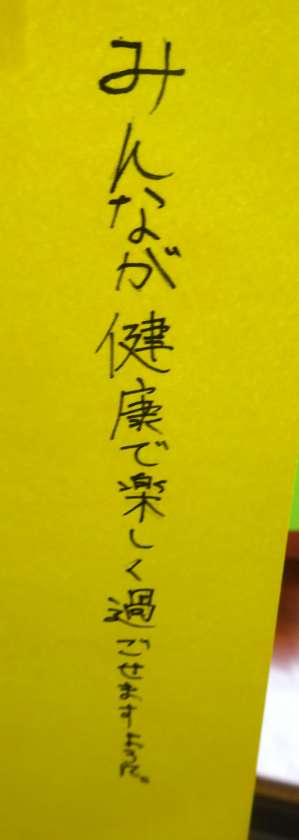 みんなが健康で楽しく過ごせますように。